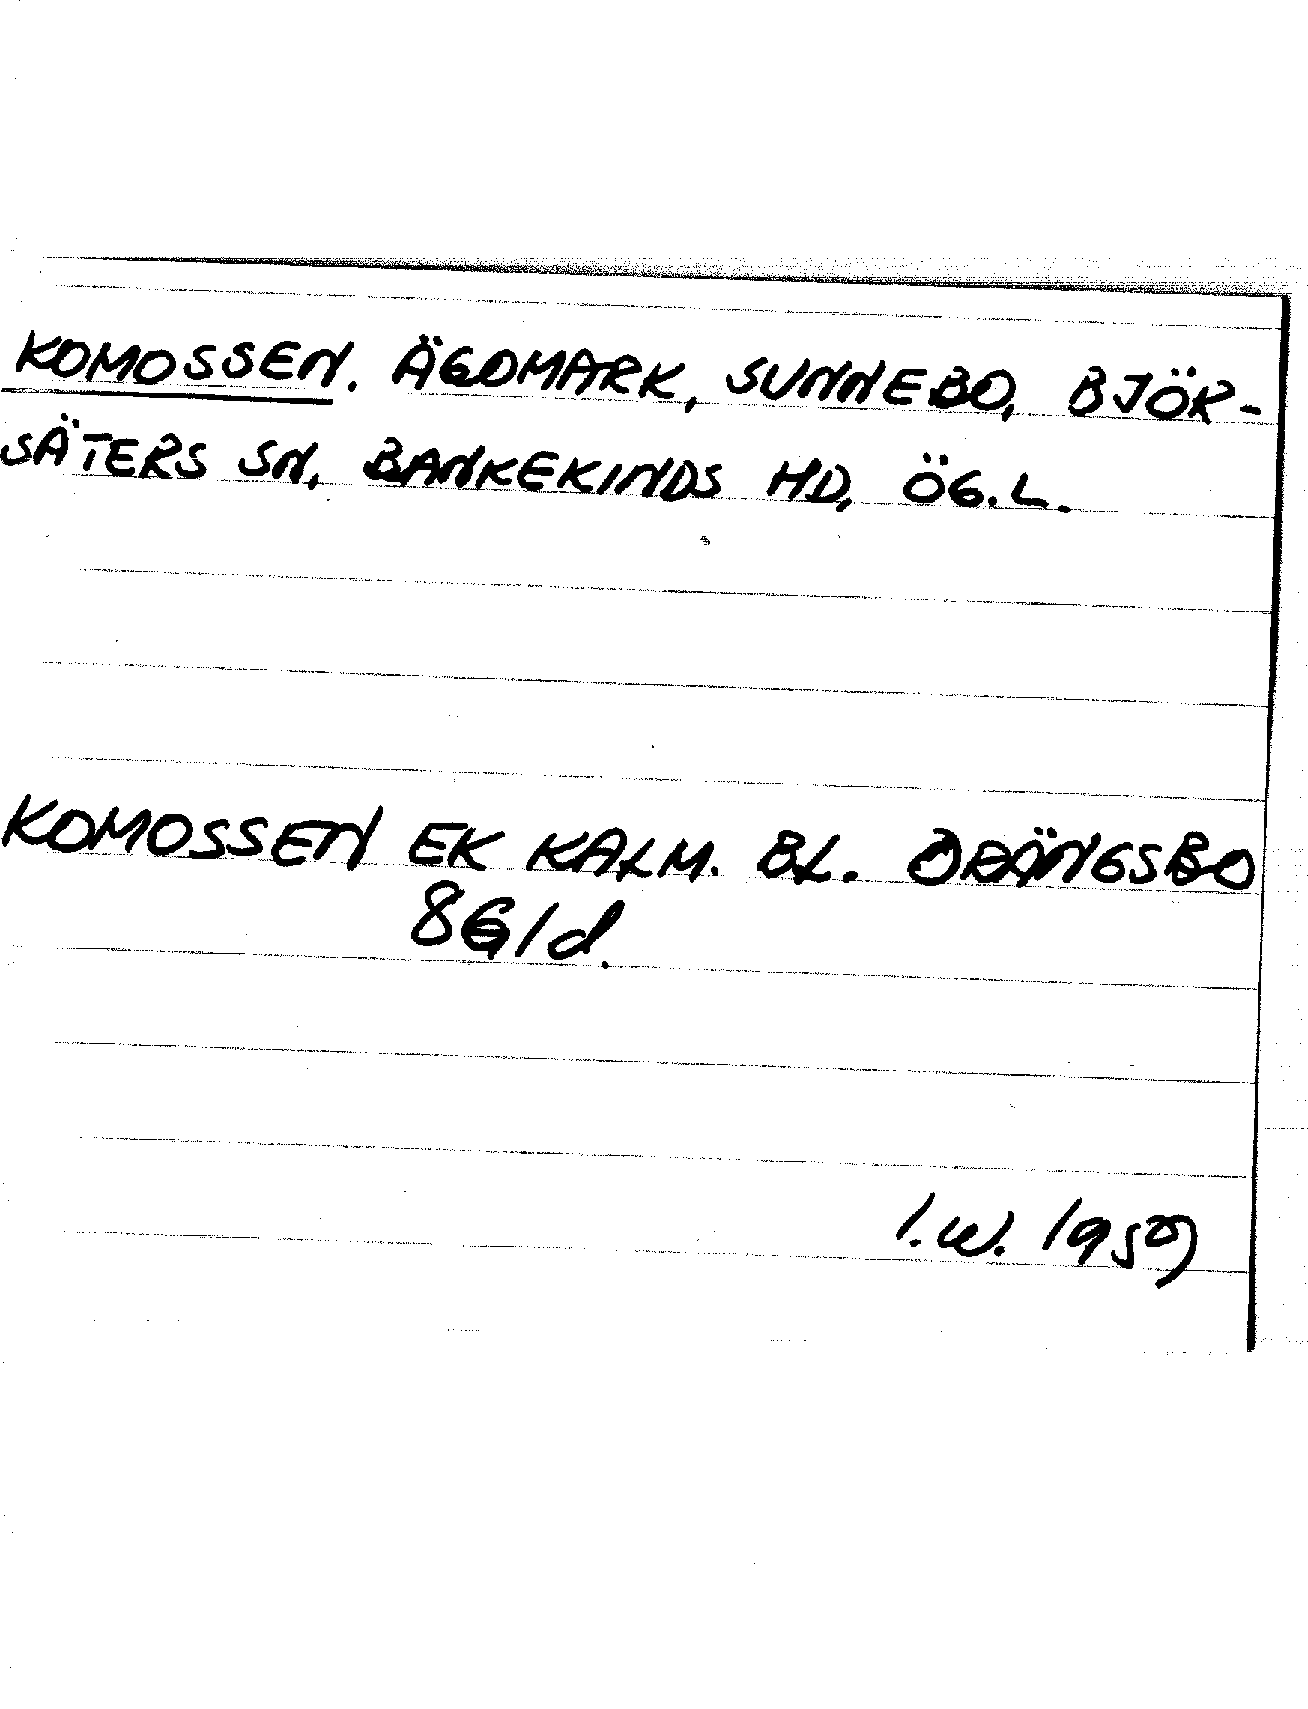 KOMOSSEN. ÄGOMARK, SUNNEBO, BJÖR-
SÄTERS SN, BANKEKINDS HD, ÖG.L.
KOMOSSEN EK KALM. BL. DRÄNGSBO
8G/d.
I.W. 1959